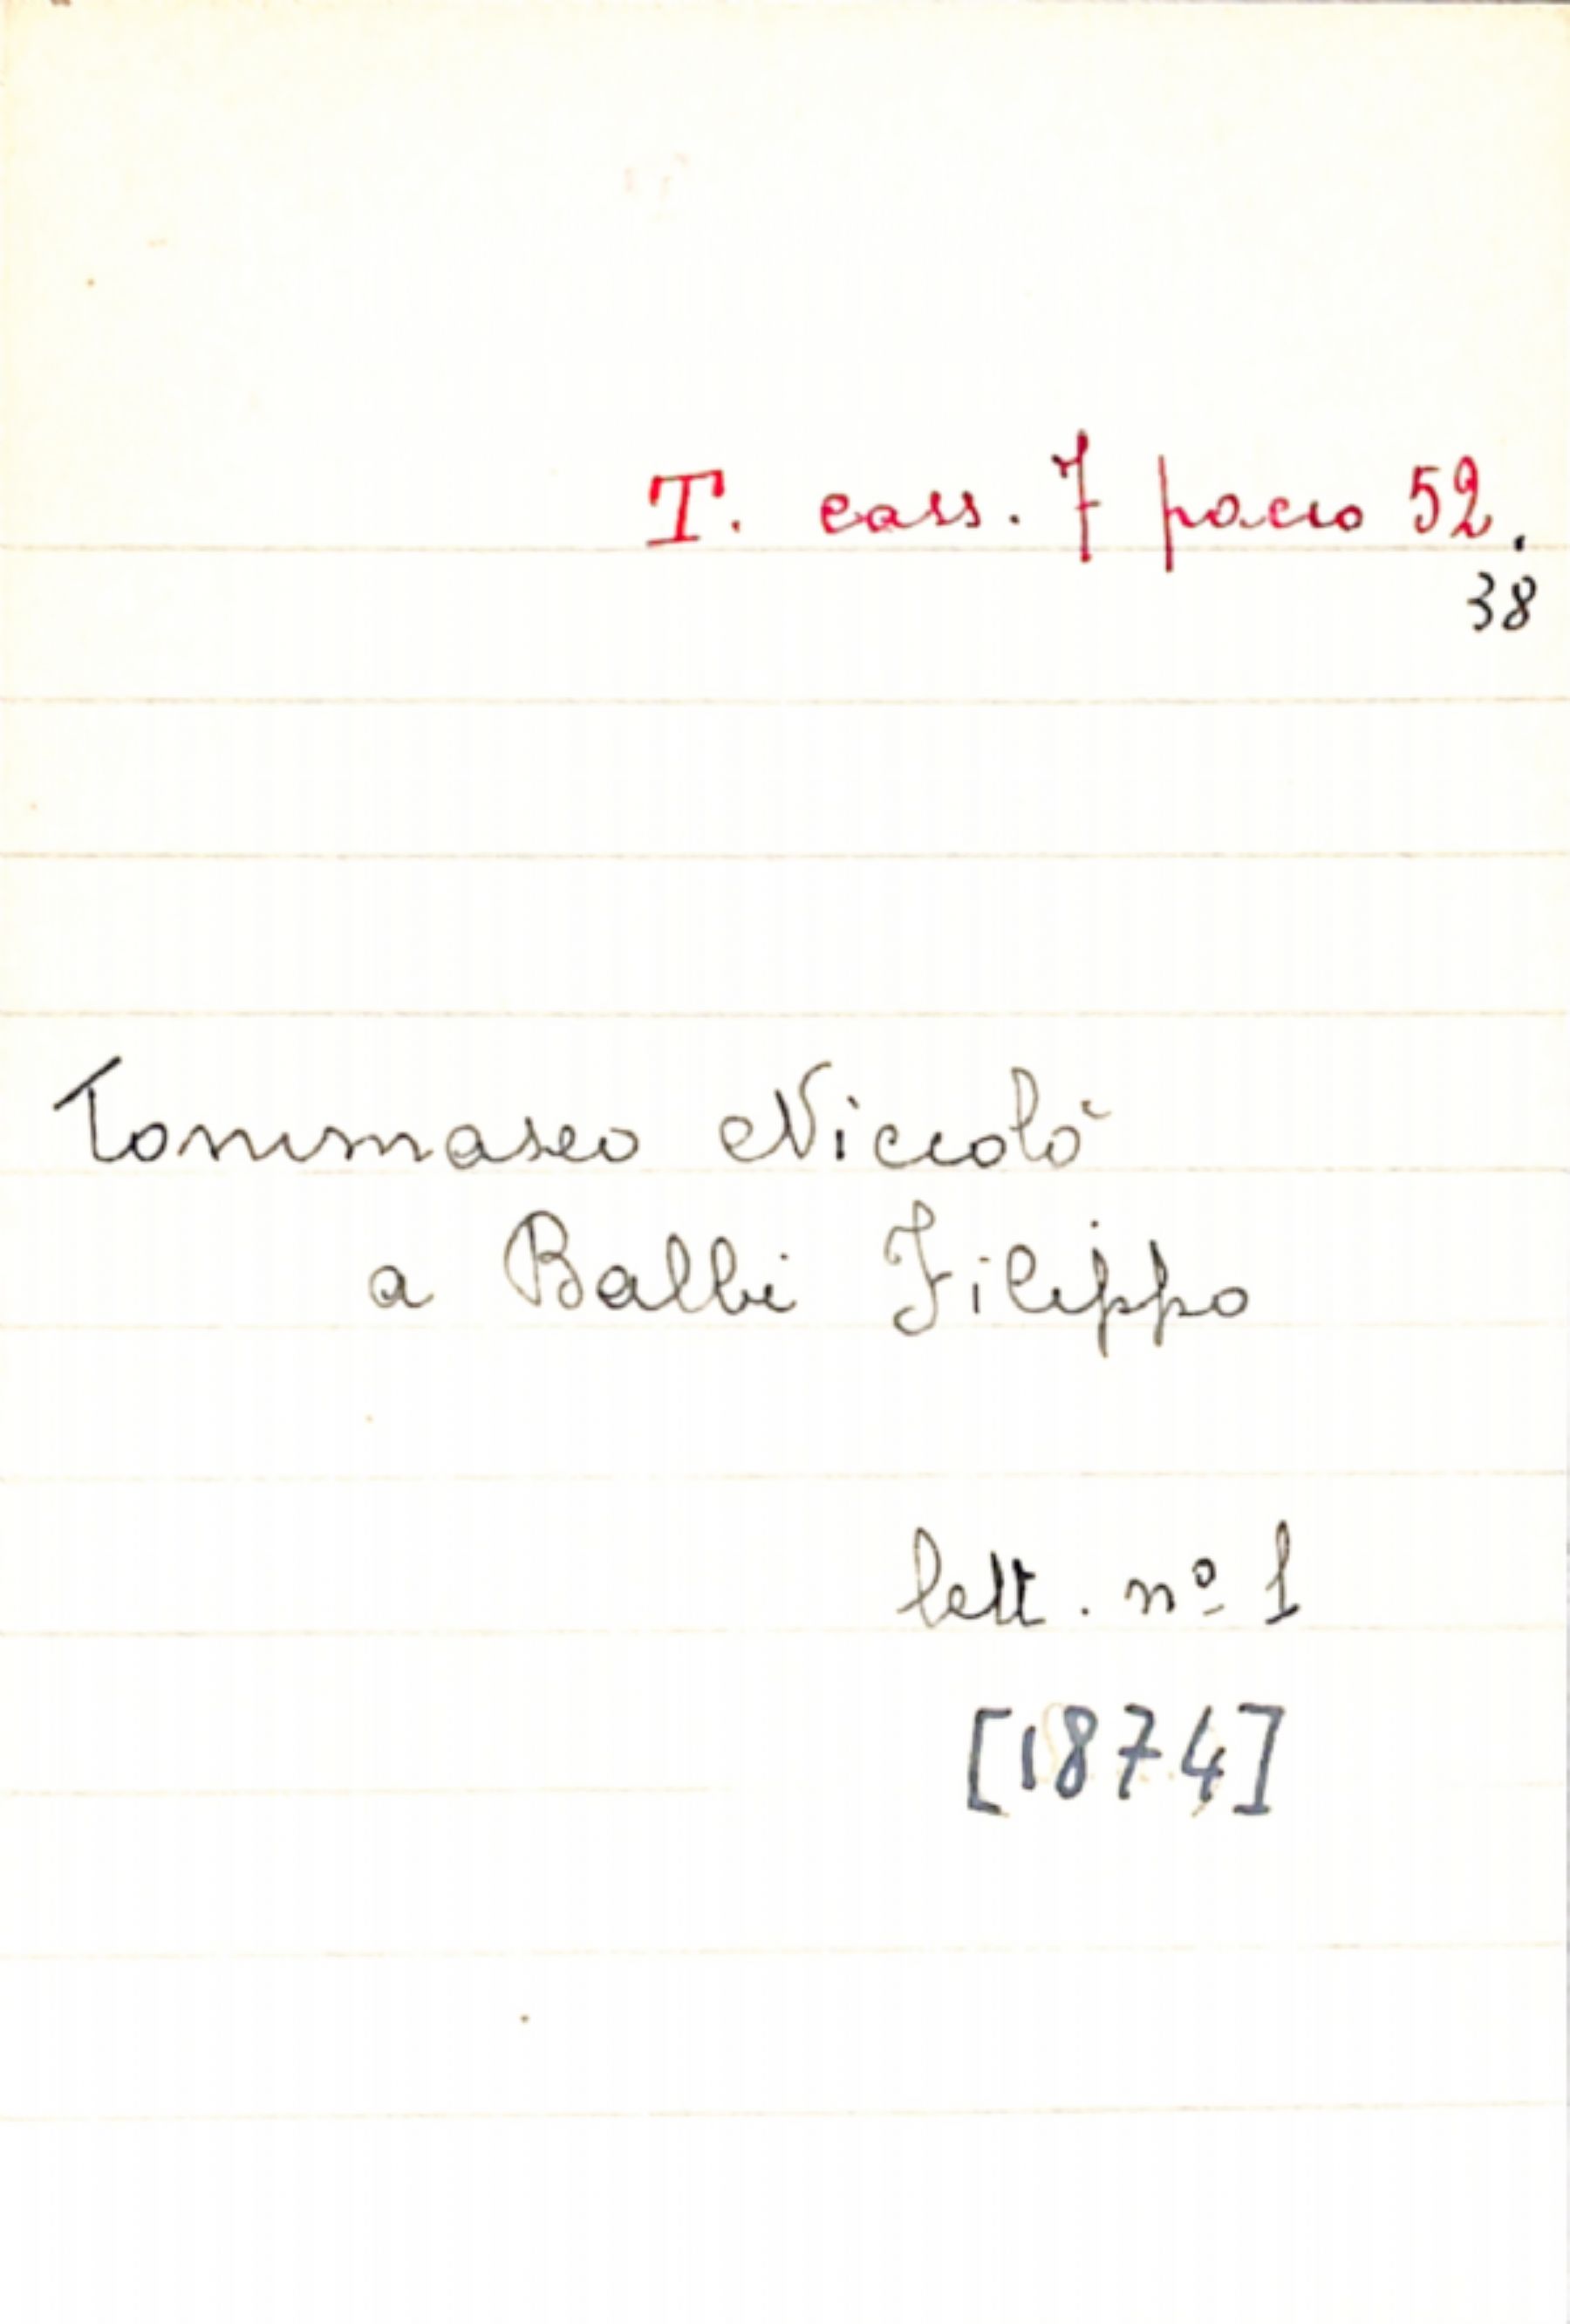 T. cass. 7 pacco 52.
38
Tommaseo Niccolò
a Balbi Filippo
lett. nº 1
[1874]